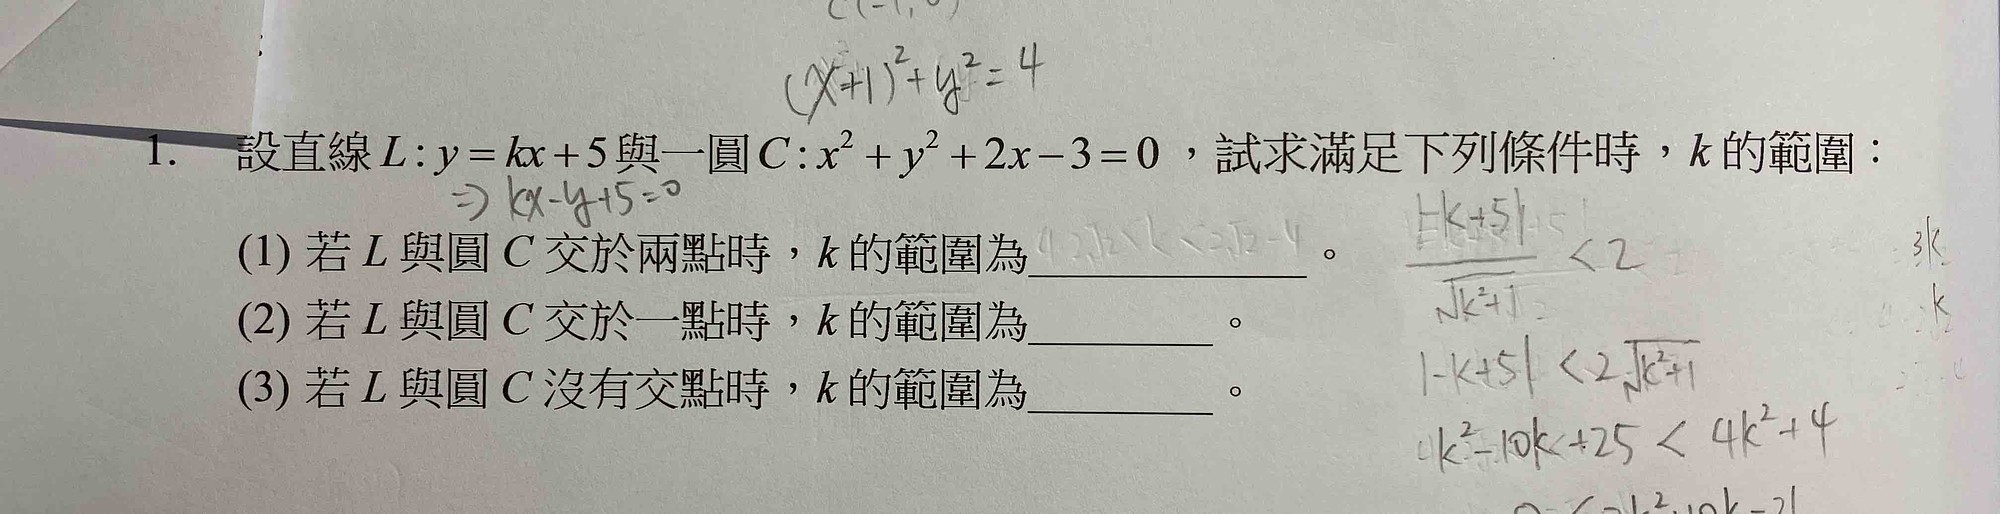 (x+1)²+y²=4
1. 設直線 L : y = kx + 5 與一圓 C : x² + y² + 2x − 3 = 0 ，試求滿足下列條件時，k 的範圍：
⇒ kx-y+5=0
(1) 若 L 與圓 C 交於兩點時，k 的範圍為____________。
|-k+5| / √k²+1 < 2
3k
(2) 若 L 與圓 C 交於一點時，k 的範圍為________。
k
|-k+5| < 2√k²+1
(3) 若 L 與圓 C 沒有交點時，k 的範圍為________。
k²-10k+25 < 4k²+4